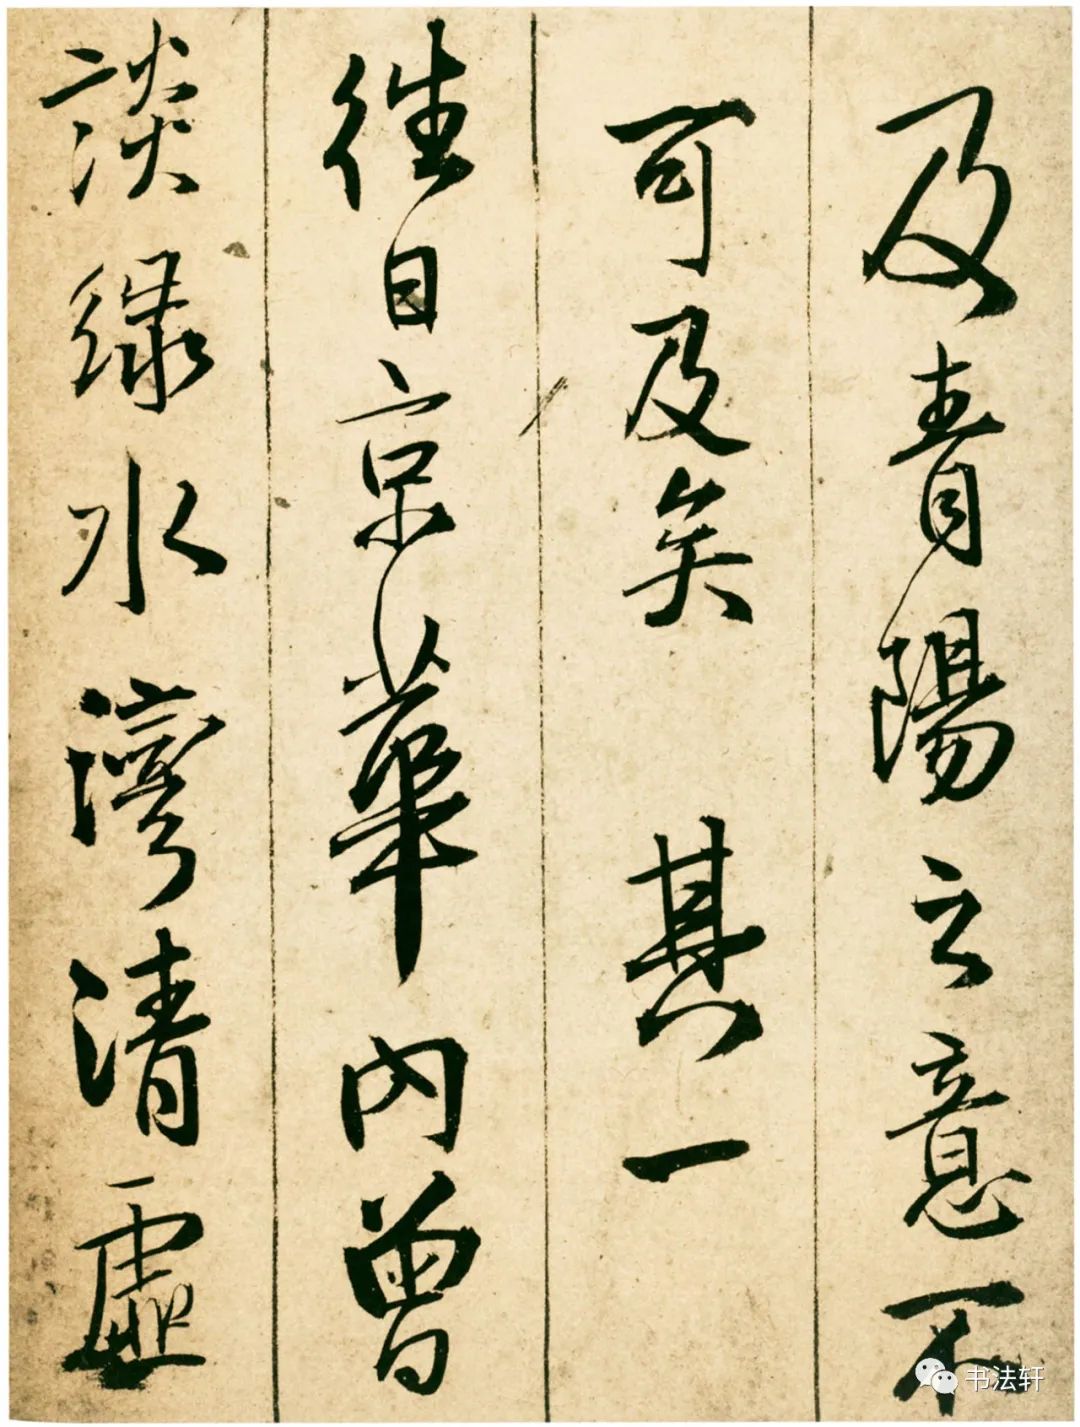 及青陽之意不
可及矣 其一
往日京華內曾
談綠水灣清虛
书法轩